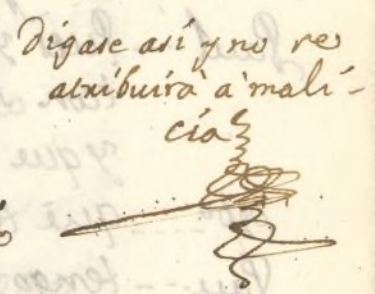 Digase asi y no se
atribuirà à mali-
cia